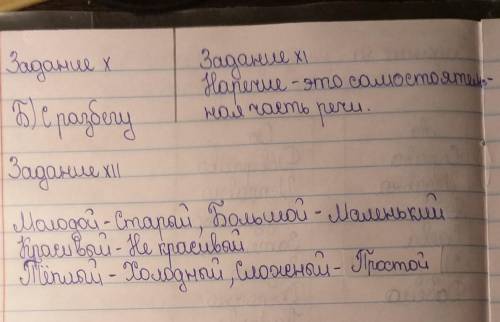 Задание X
Б) С разбегу
Задание XI
Наречие - это самостоятель-
ная часть речи.
Задание XII
Молодой - Старый, Большой - Маленький
Красивый - Не красивый
Тёплый - Холодный, Сложеный - Простой